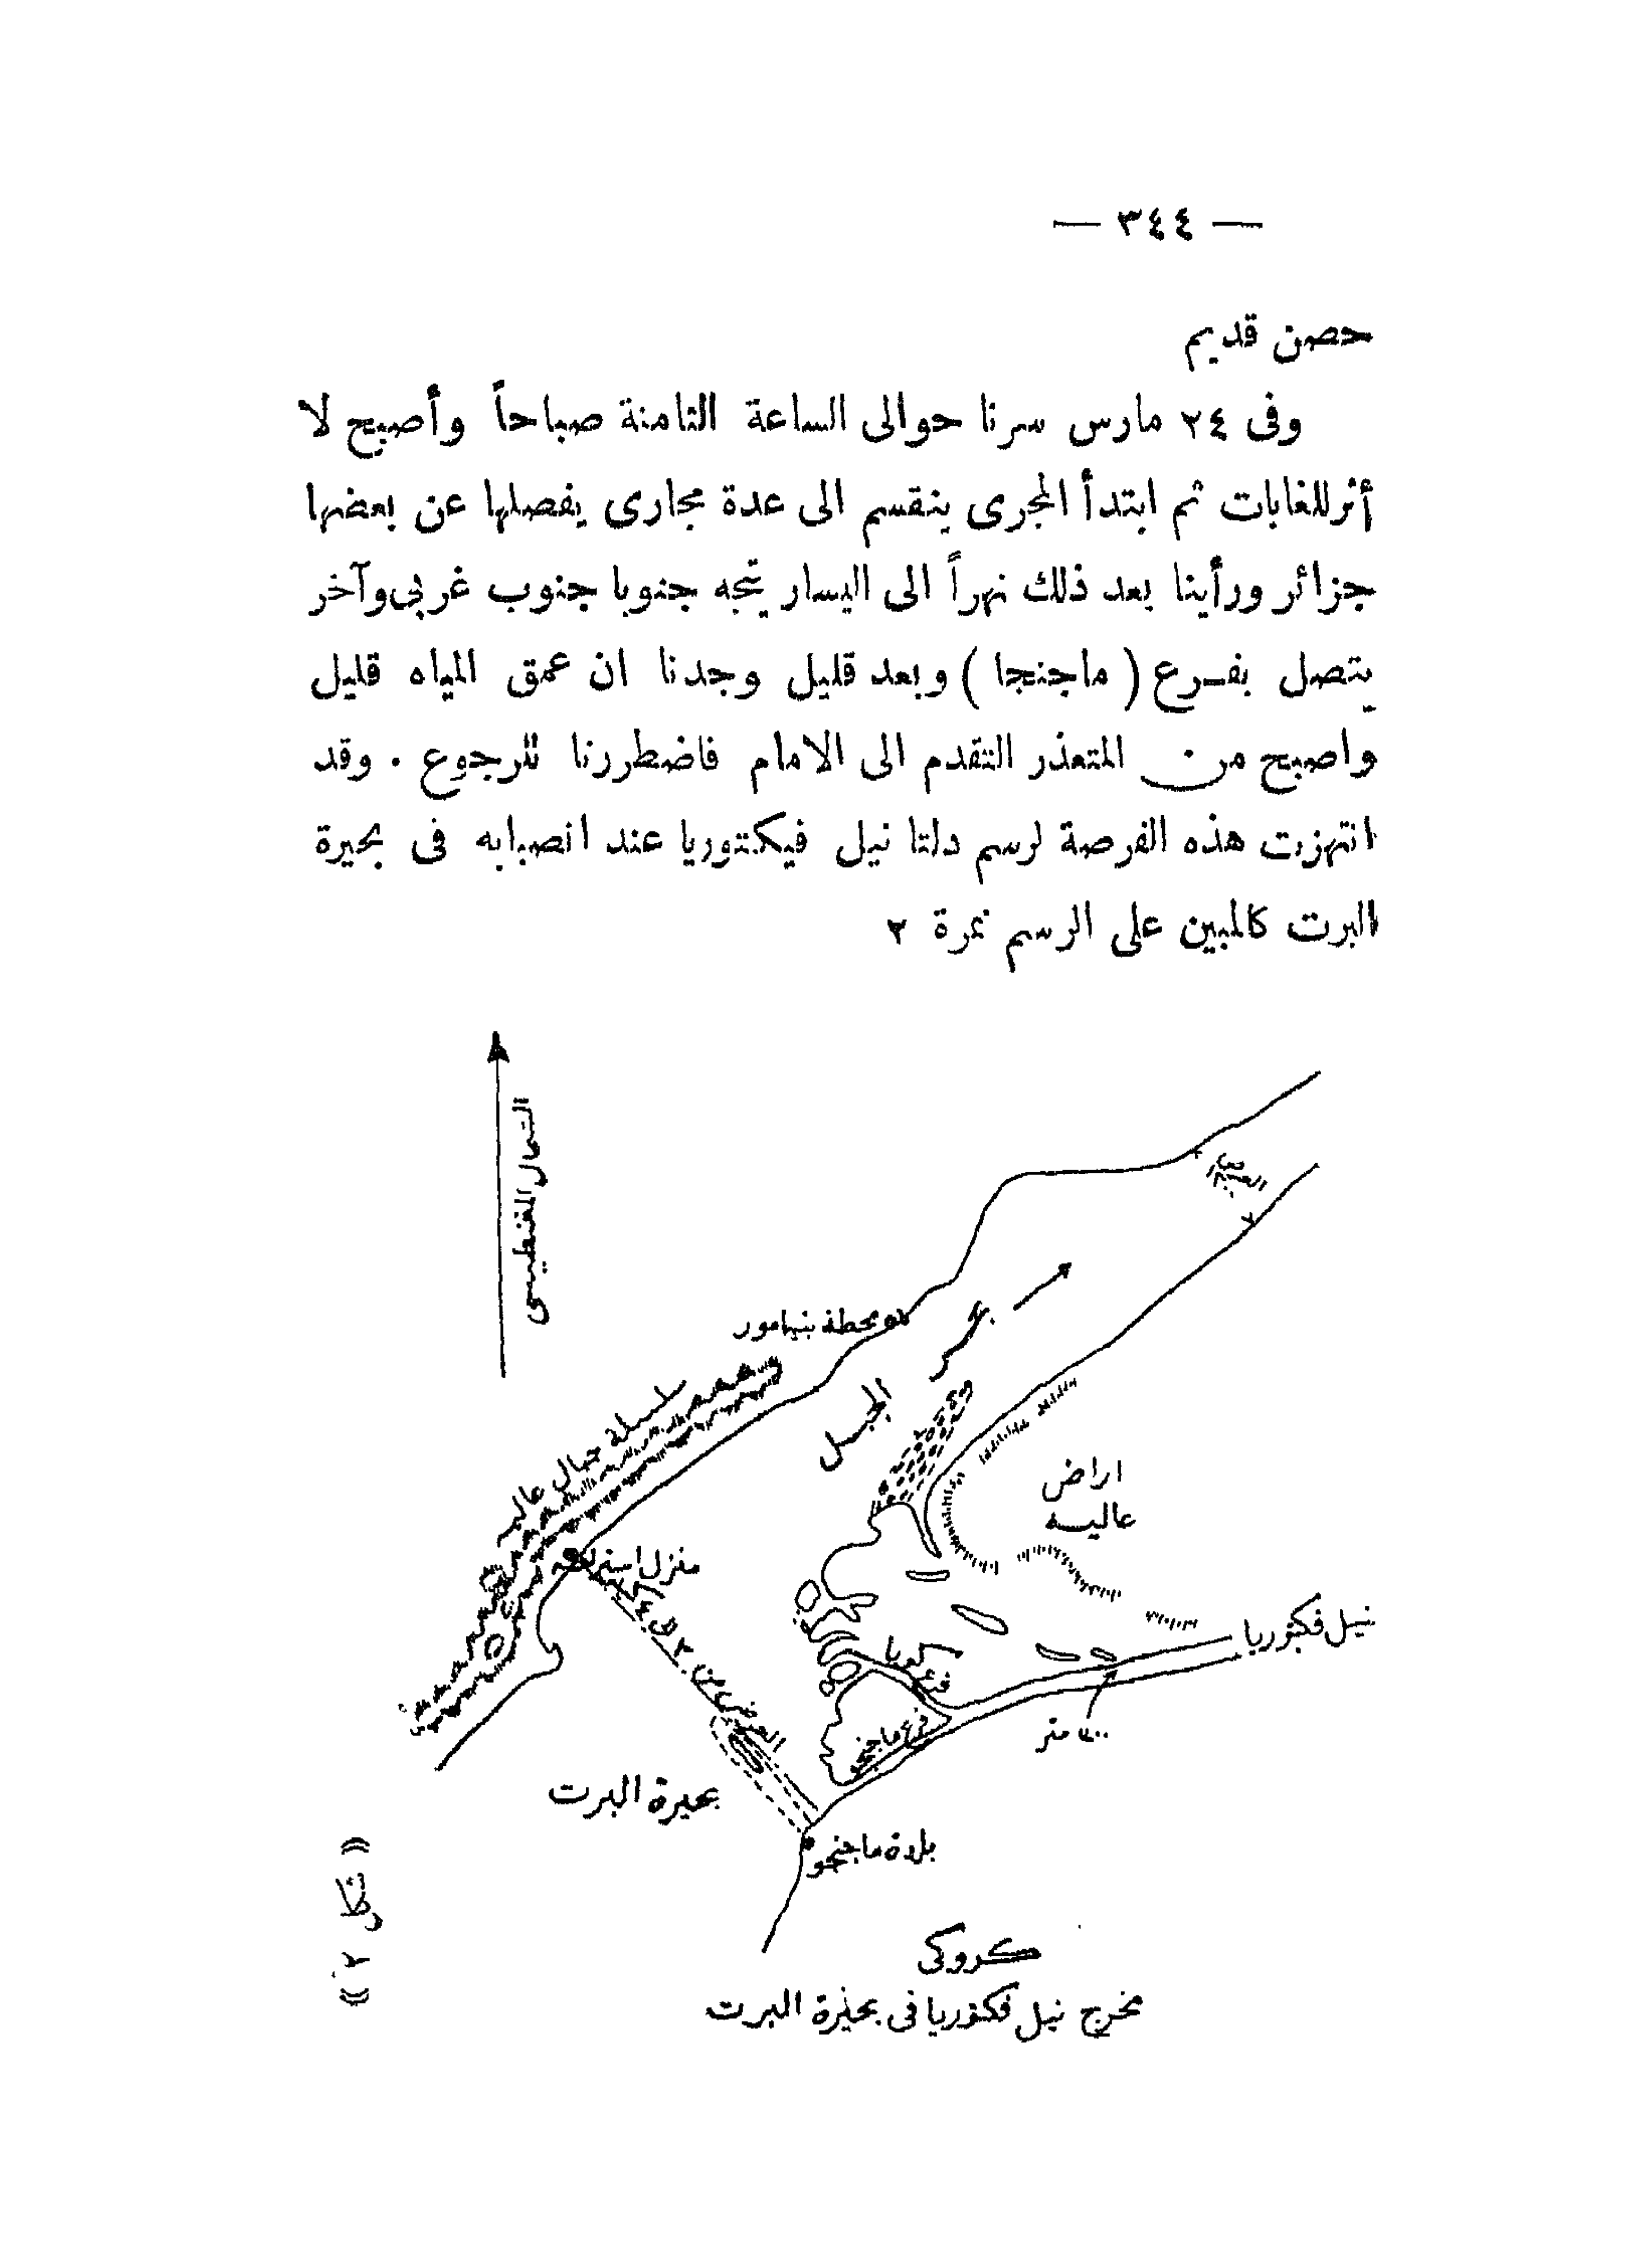 — ٣٤٤ —
حصن قديم
وفى ٢٤ مارس سرنا حوالى الساعة الثامنة صباحاً وأصبح لا
أثر للغابات ثم ابتدأ المجرى ينقسم الى عدة مجارى يفصلها عن بعضها
جزائر ورأينا بعد ذلك نهراً الى اليسار يتجه جنوبا جنوب غربى وآخر
يتصل بفرع ( ماجنجا ) وبعد قليل وجدنا ان عمق المياه قليل
واصبح من المتعذر التقدم الى الامام فاضطررنا للرجوع . وقد
انتهزت هذه الفرصة لرسم دلتا نيل فيكتوريا عند انصبابه فى بحيرة
البرت كالمبين على الرسم نمرة ٢
الشمال المغنطيسى
محطة بنيامور
بحر
الجبل
سلسلة جبال عاليه
اراض
عاليه
منزل
نيل فكتوريا
العرض من ٣ الى ٤
فرع
فرع ماجنجو
متر
بحيرة البرت
بلدة ماجنجو
( شكل ٢ )
كروكى
مخرج نيل فكتوريا فى بحيرة البرت